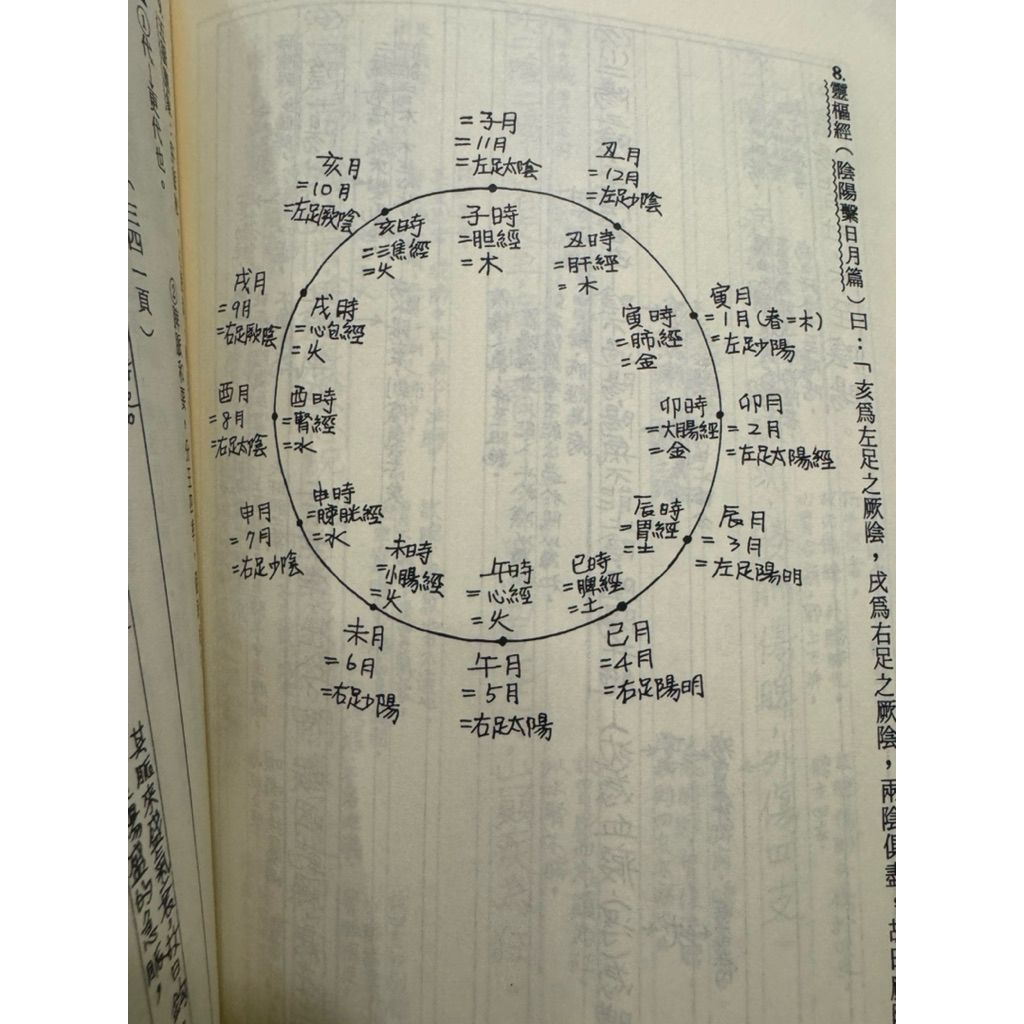 8.靈樞經（陰陽繫日月篇）曰：「亥爲左足之厥陰，戌爲右足之厥陰，兩陰俱盡，故曰厥
=子月
=11月
=左足太陰
丑月
=12月
=左足少陰
寅月
=1月(春=木)
=左足少陽
卯月
=2月
=左足太陽經
辰月
=3月
=左足陽明
巳月
=4月
=右足陽明
午月
=5月
=右足太陽
未月
=6月
=右足少陽
申月
=7月
=右足少陰
酉月
=8月
=右足太陰
戌月
=9月
=右足厥陰
亥月
=10月
=左足厥陰
子時
=胆經
=木
丑時
=肝經
=木
寅時
=肺經
=金
卯時
=大腸經
=金
辰時
=胃經
=土
巳時
=脾經
=土
午時
=心經
=火
未時
=小腸經
=火
申時
=脖胱經
=水
酉時
=腎經
=水
戌時
=心包經
=火
亥時
=三焦經
=火
（三四一頁）